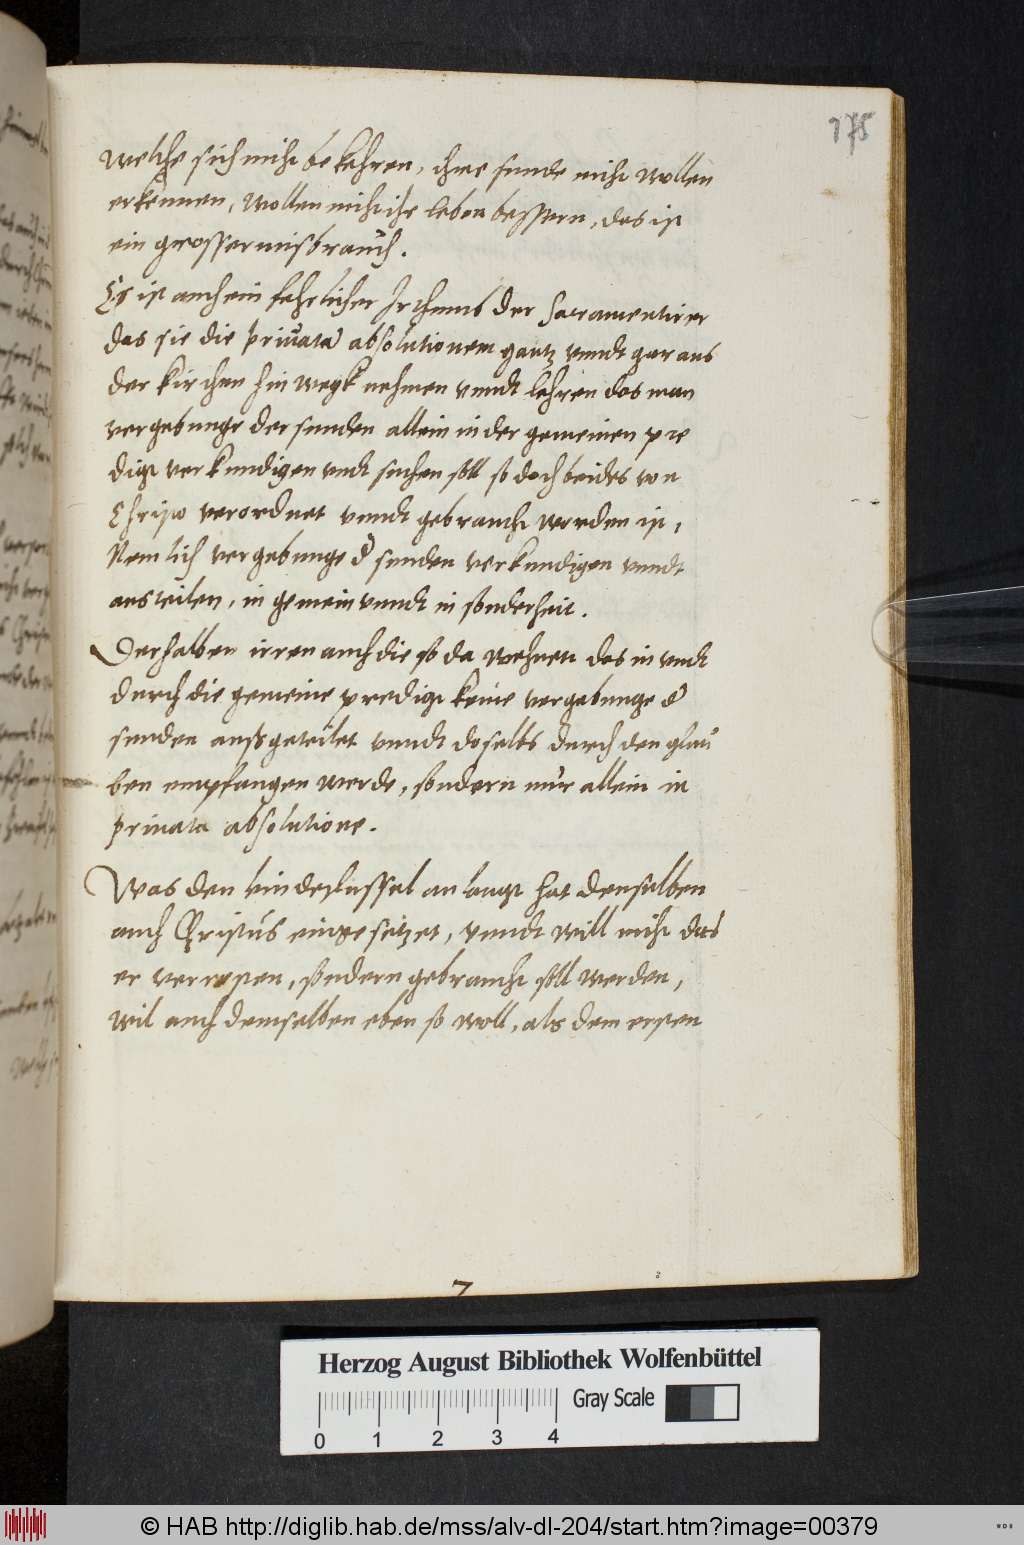 175
welche sich nicht bekehren, ihre sunde nicht wollen
erkennen, wollen nicht ihr leben bessern, das ist
ein grosser misbrauch.
Es ist auch ein fehrlicher Irthumb der Sacramentirer
das sie die priuata absolutionem gantz vnndt gar aus
der kirchen hin wegk nehmen vnndt lehren das man
vergebunge der sunden allein in der gemeinen pre
digt verkundigen vndt suchen soll so doch beides von
Christo verordnet vnndt gebraucht worden ist,
Nemlich vergebunge d sunden verkundigen vnndt
austeilen, in gemein vnndt in sonderheit.
Derhalben irren auch die so da wehnen das in vndt
durch die gemeine predigt keine vergebunge d
sunden außgeteilet vnndt doselbs durch den glau
ben empfangen werde, sondern nur allein in
priuata absolutione.
Was den bindeslussel an langt hat denselben
auch Christus eingesetzet, vnndt will nicht das
er verrosten, sondern gebraucht soll werden,
wil auch demselben eben so woll, als dem ersten
Herzog August Bibliothek Wolfenbüttel
Gray Scale
0 1 2 3 4
© HAB http://diglib.hab.de/mss/alv-dl-204/start.htm?image=00379